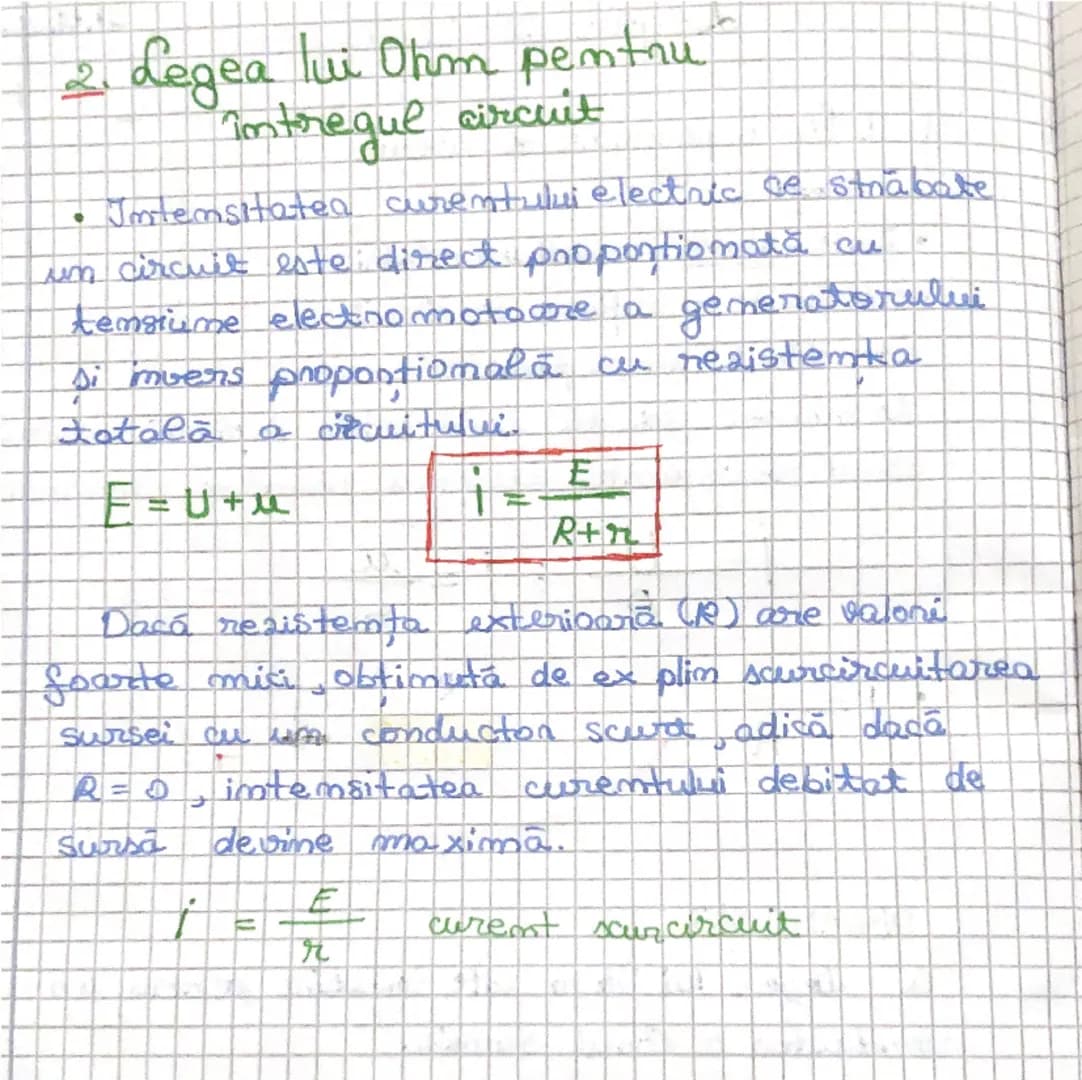 2. Legea lui Ohm pentru
întregul circuit
• Intensitatea curentului electric ce străbate
un circuit este direct proporționată cu
tensiune electromotoare a generatorului
și invers proporțională cu rezistența
totală a circuitului.
E = U + u i = E / R+r
Dacă rezistența exterioară (R) are valori
foarte mici, obținută de ex plin scurcircuitarea
sursei cu un conductor scurt, adică dacă
R = 0, intensitatea curentului debitat de
sursă devine maximă.
i = E / r curent scurcircuit